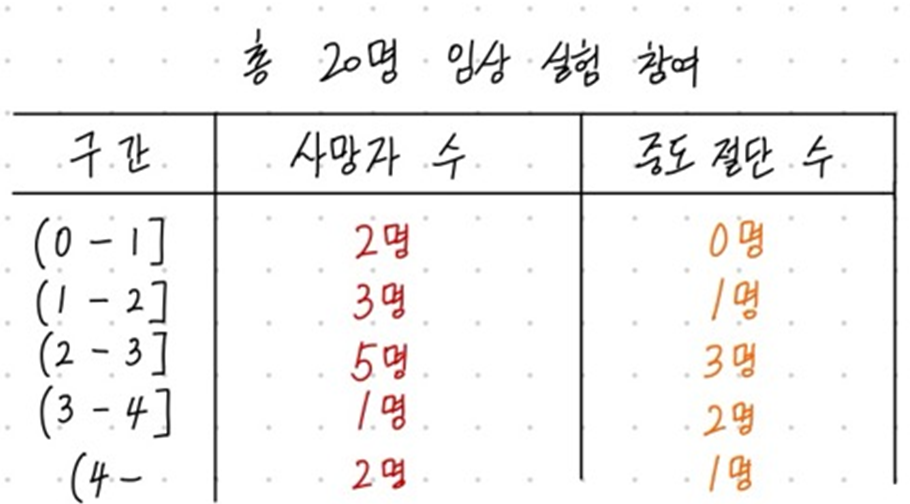 총 20명 임상 실험 참여
구간 사망자 수 중도 절단 수
(0 - 1] 2명 0명
(1 - 2] 3명 1명
(2 - 3] 5명 3명
(3 - 4] 1명 2명
(4 - 2명 1명